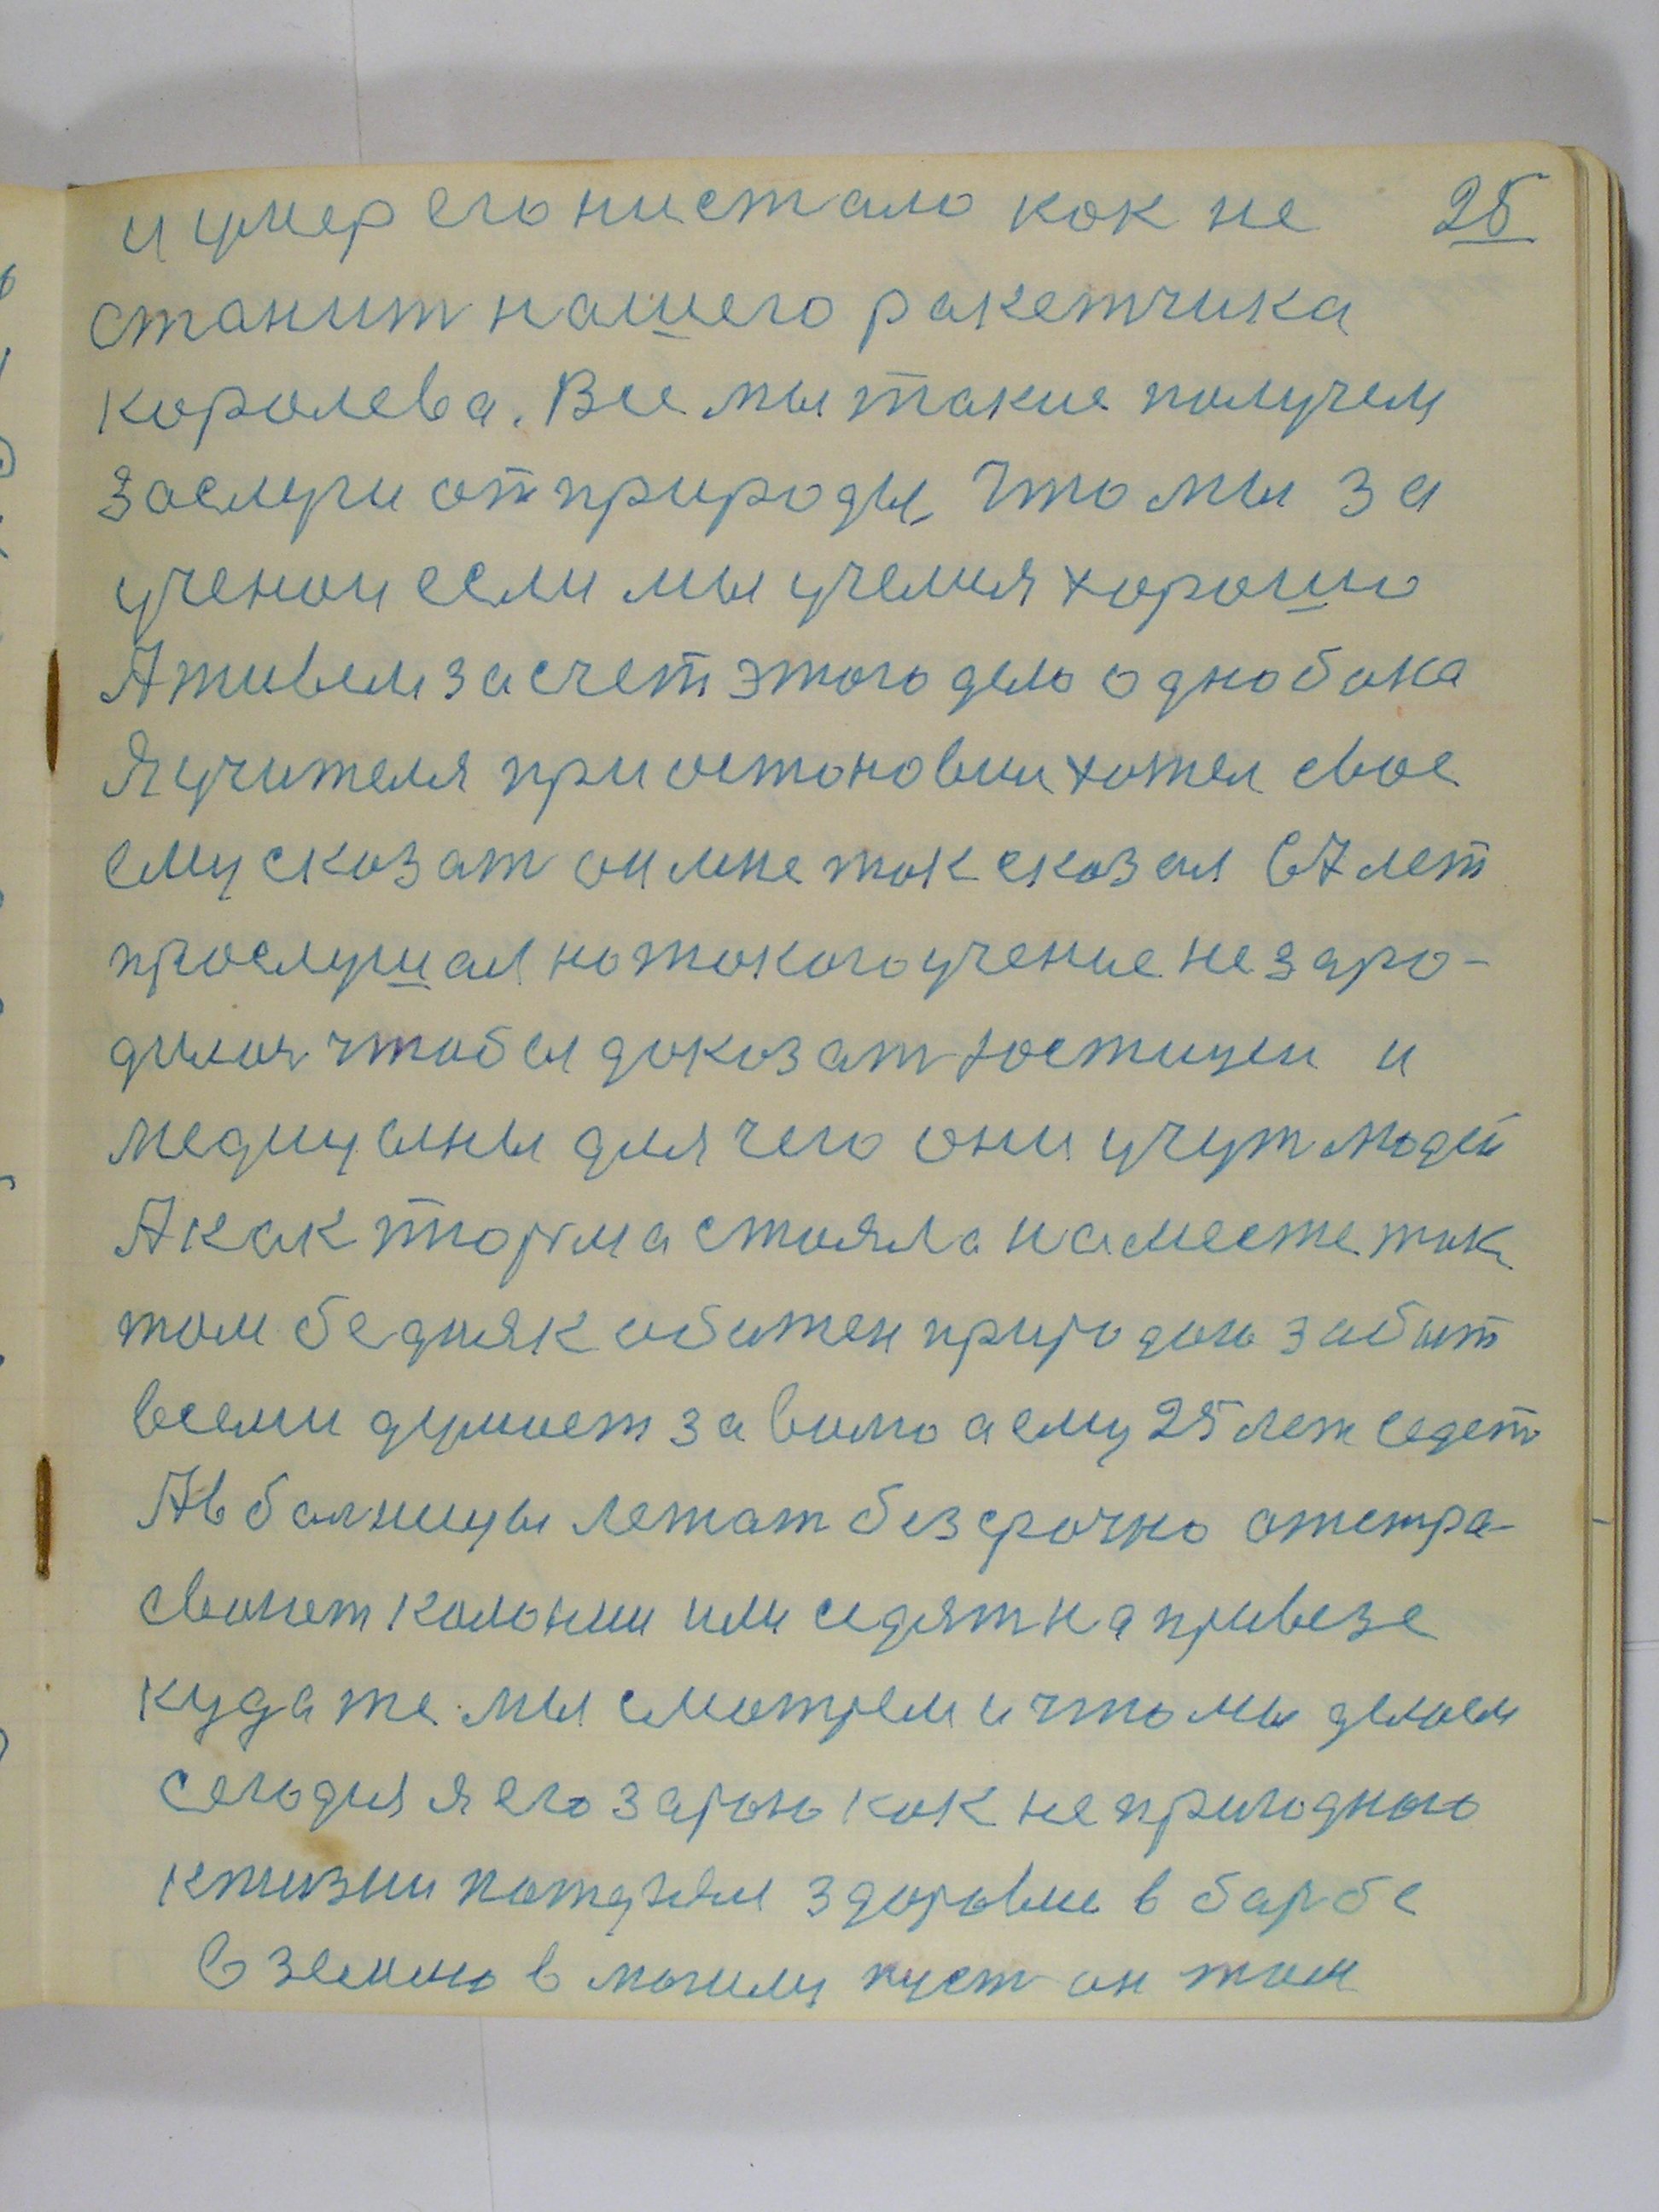 и умер его нистало кок не 25
станит нашего ракетчика
королева. Все мы такие получем
заслуги от природы, Что мы за
ученои если мы учемия хорошо
А живем за счет этого дело однобока
Я учителя приостоновил хотел свое
ему сказат он мне ток сказал 67 лет
прослушал но токого учение не заро-
дилося чтобы доказат юстицеи и
медицыны для чего они учут людей
А как тюрма стояла на месте так
там бедняк обижен природою забыт
всеми думает за волю а ему 25 лет седет
А в болницы лежат безсрочно отстра-
свонет колонии или седят на привезе
куда же мы смотрем и что мы делаем
сегодня я его зарою как непригодного
к жизни потерял здоровие в барбе
в землю в могилу пуст он там